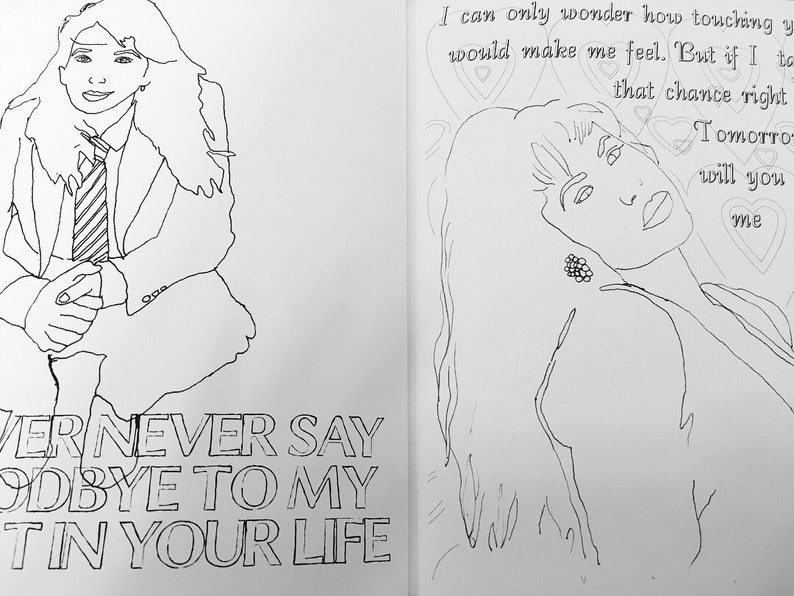 NEVER SAY
TO MY
IN YOUR LIFE
I can only wonder how touching
would make me feel. But if I
that chance right
will you
me